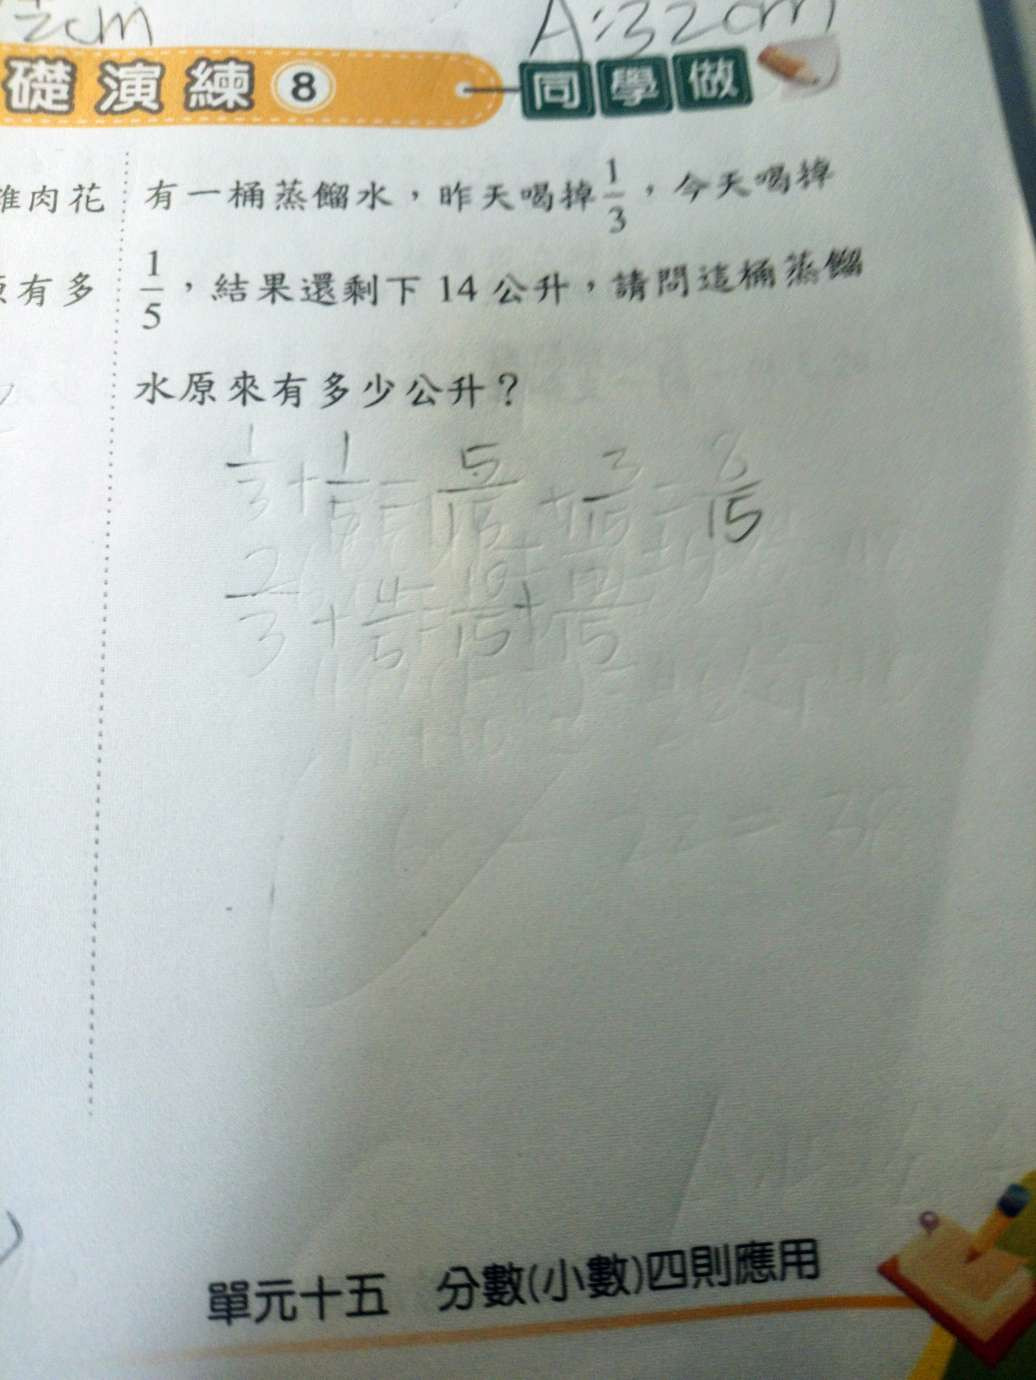 ½cm
A:32cm
礎演練8
同學做
雞肉花
有一桶蒸餾水，昨天喝掉1/3，今天喝掉
有多
1/5，結果還剩下14公升，請問這桶蒸餾
水原來有多少公升？
1/3+1/5=5/15+3/15=8/15
2/3+4/5=10/15+12/15
單元十五 分數(小數)四則應用